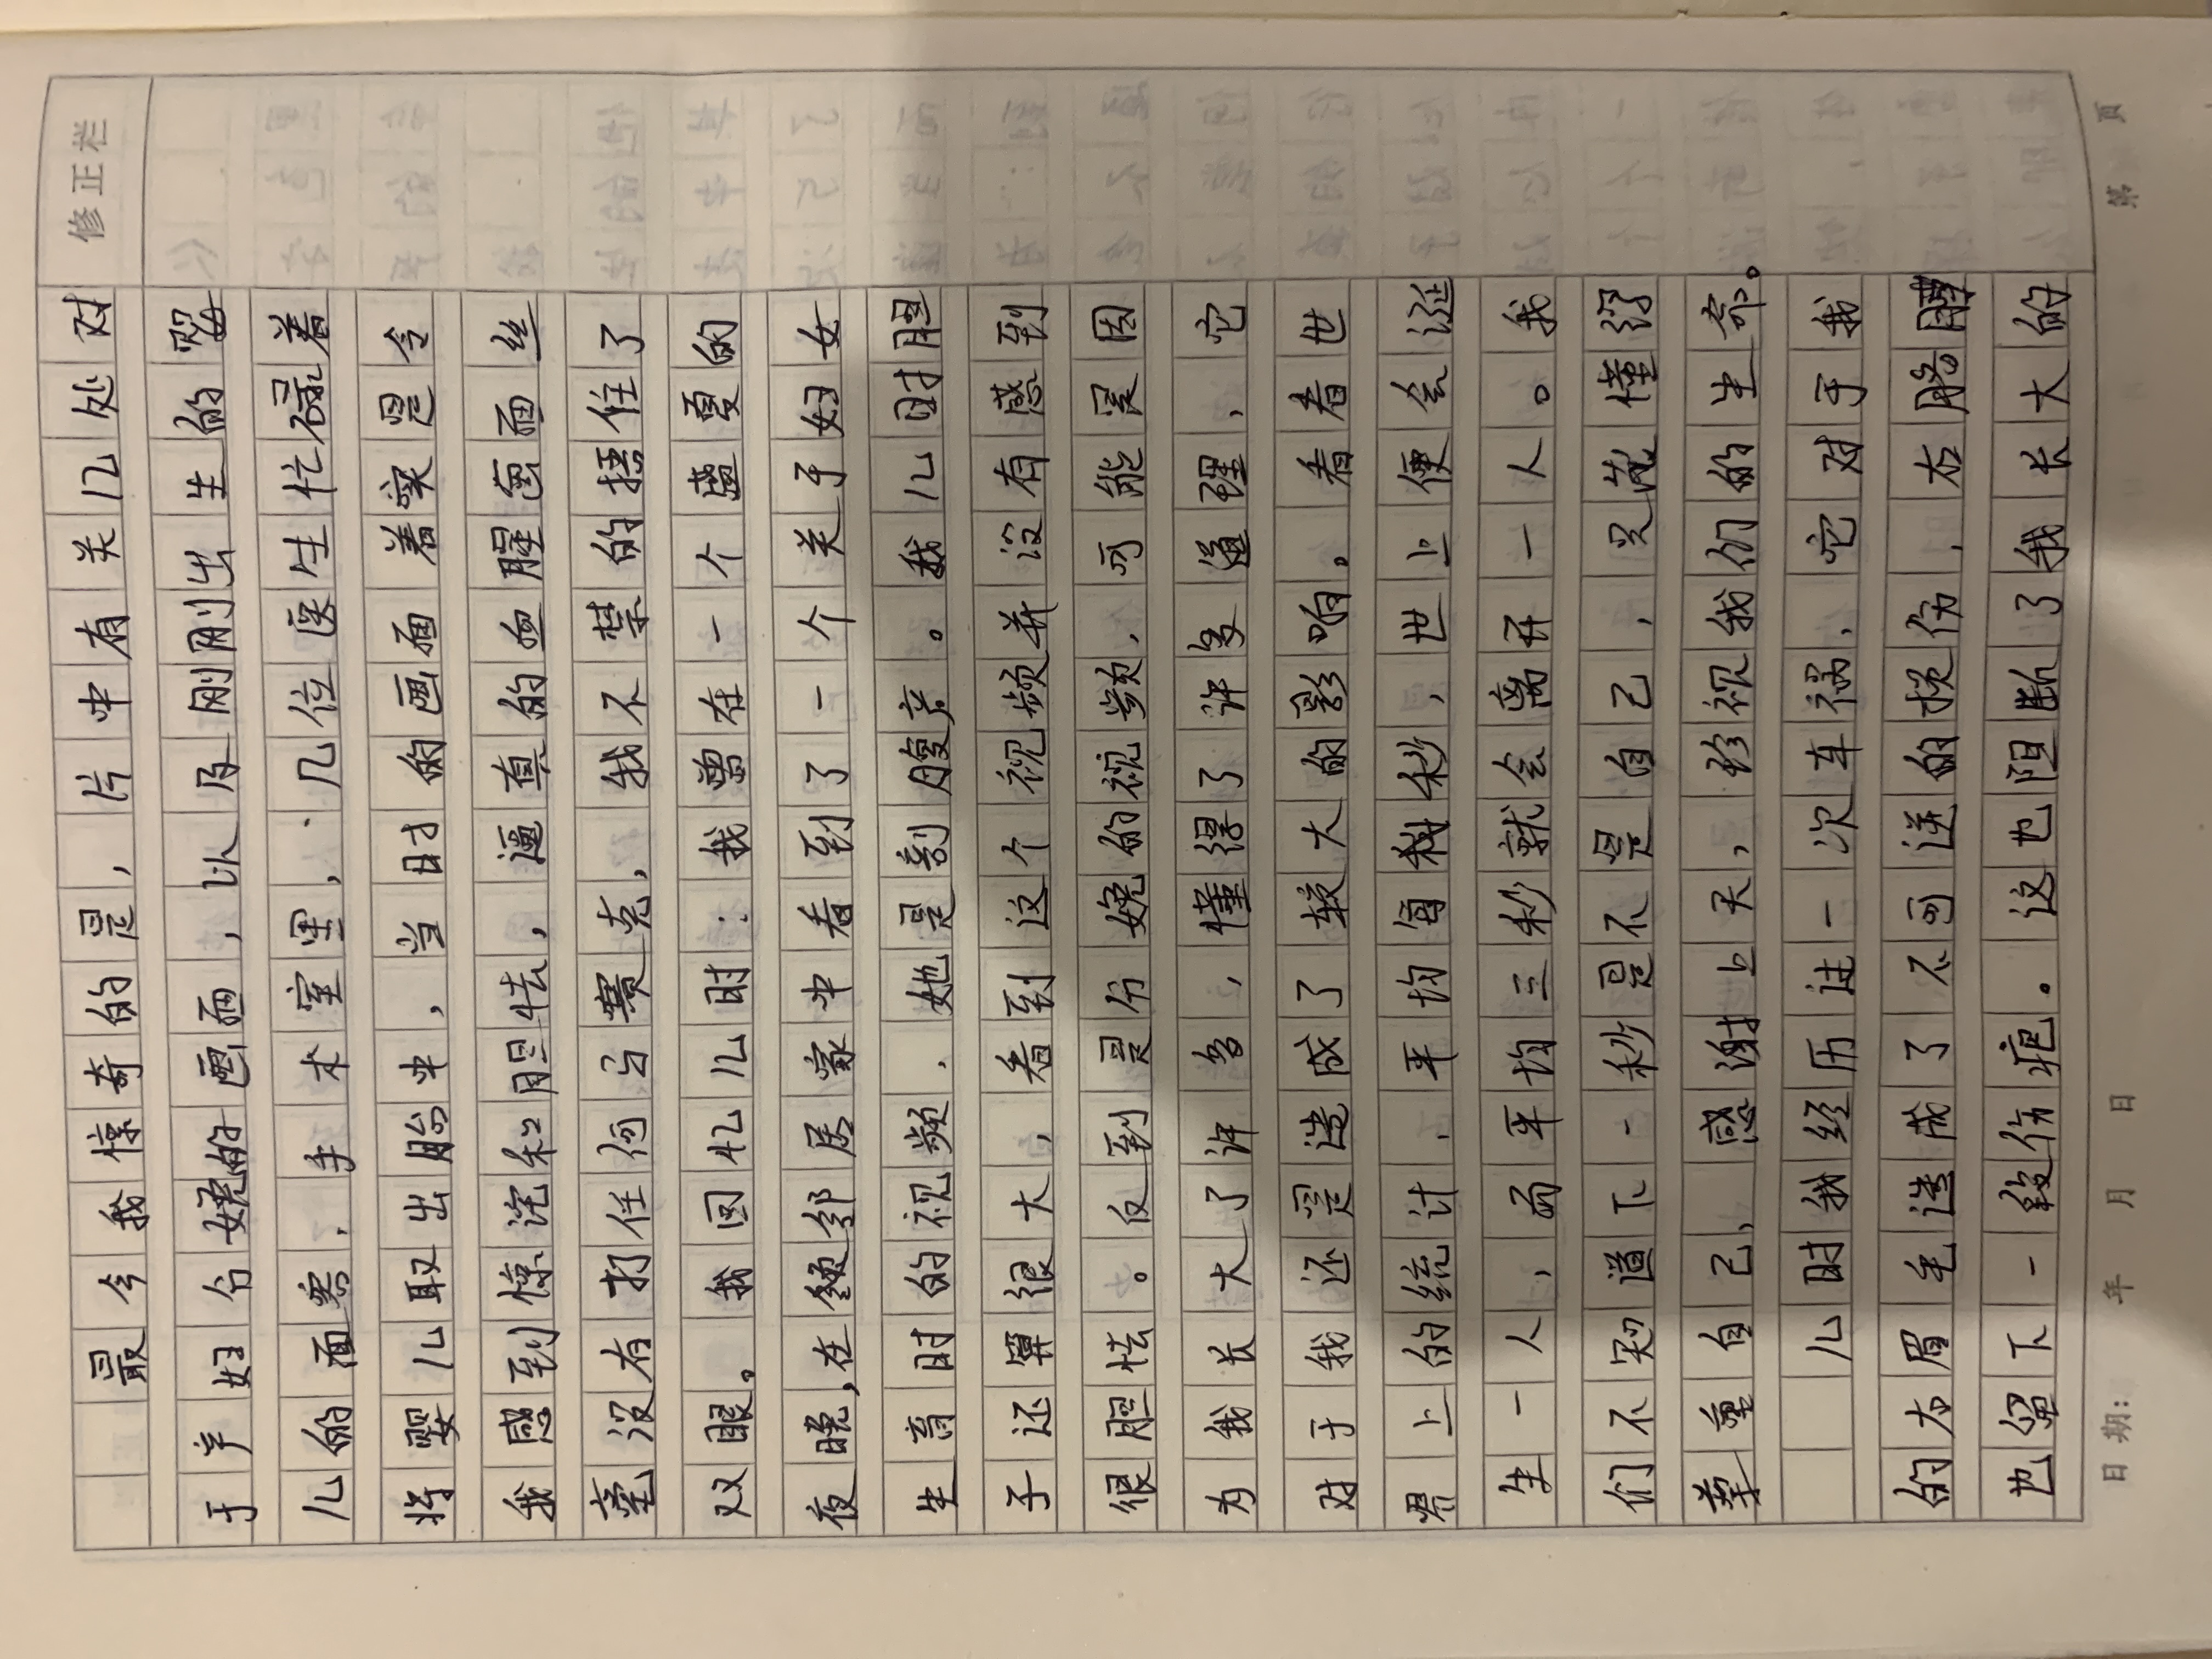 修正栏
最令我惊奇的是，片中有关几处对
于产妇分娩的画面，以及刚刚出生的婴
儿的画面案，手术室里，几位医生忙碌着
将婴儿取出胎中，当时的画面着实是令
我感到惊诧和胆怯，逼真的血腥画面丝
毫没有打任何马赛克，我不禁的捂住了
双眼。我回忆儿时：我曾在一个盛夏的
夜晚，在邻居家中看到了一个关于妇女
生育时的视频，她是剖腹产。我儿时胆
子还算很大，看到这个视频并没有感到
很胆怯。反到是分娩的视频，可能是因
为我长大了许多，懂得了许多道理，它
对于我还是造成了较大的影响。看看世
界上的统计，平均每秒，世上便会诞
生一人，而平均三秒就会离开一人。我
们不知道下一秒是不是自己，只能懂得
尊重自己，感谢上天，珍视我们的生命。
儿时我经历过一次车祸，它对于我
的右眉毛造成了不可逆的损伤，右胳膊
也留下一段伤疤。这也阻断了我长大的
日期： 年 月 日 第 页